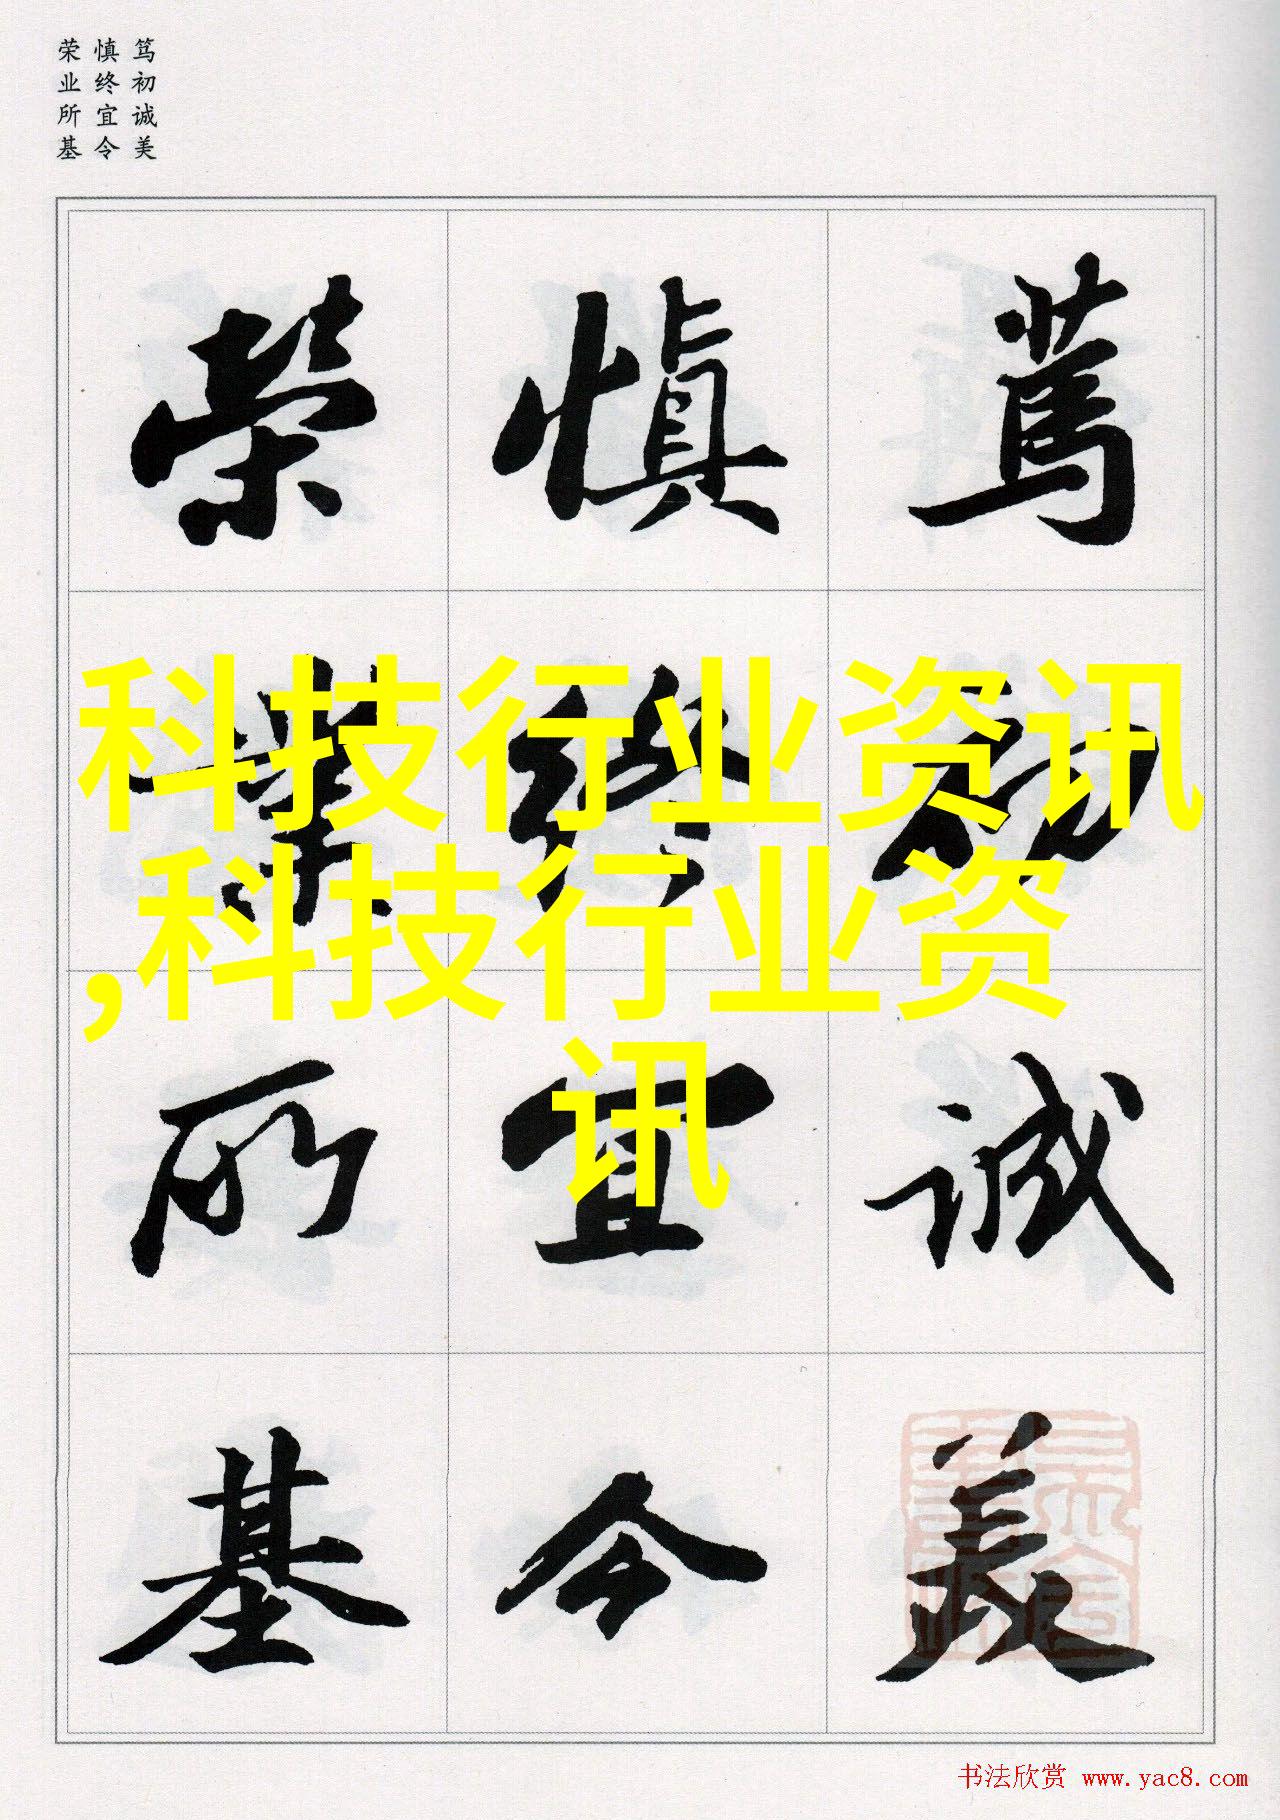 笃初诚美
慎终宜令
荣业所基
篤
初
诚
美
慎
終
宜
令
榮
業
所
基
科技行业资讯
,科技行业资
讯
书法欣赏 www.yac8.com